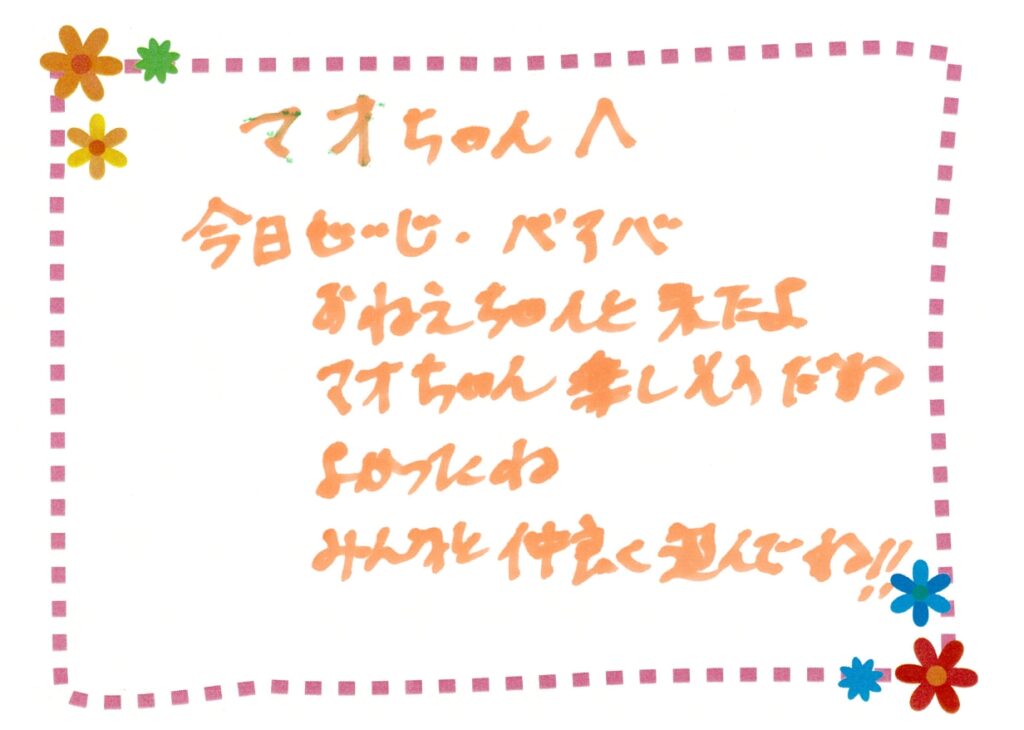 マオちゃんへ
今日じーじ・バアバ
おねえちゃんと来たよ
マオちゃん楽しそうだね
よかったね
みんなと仲良く遊んでね!!